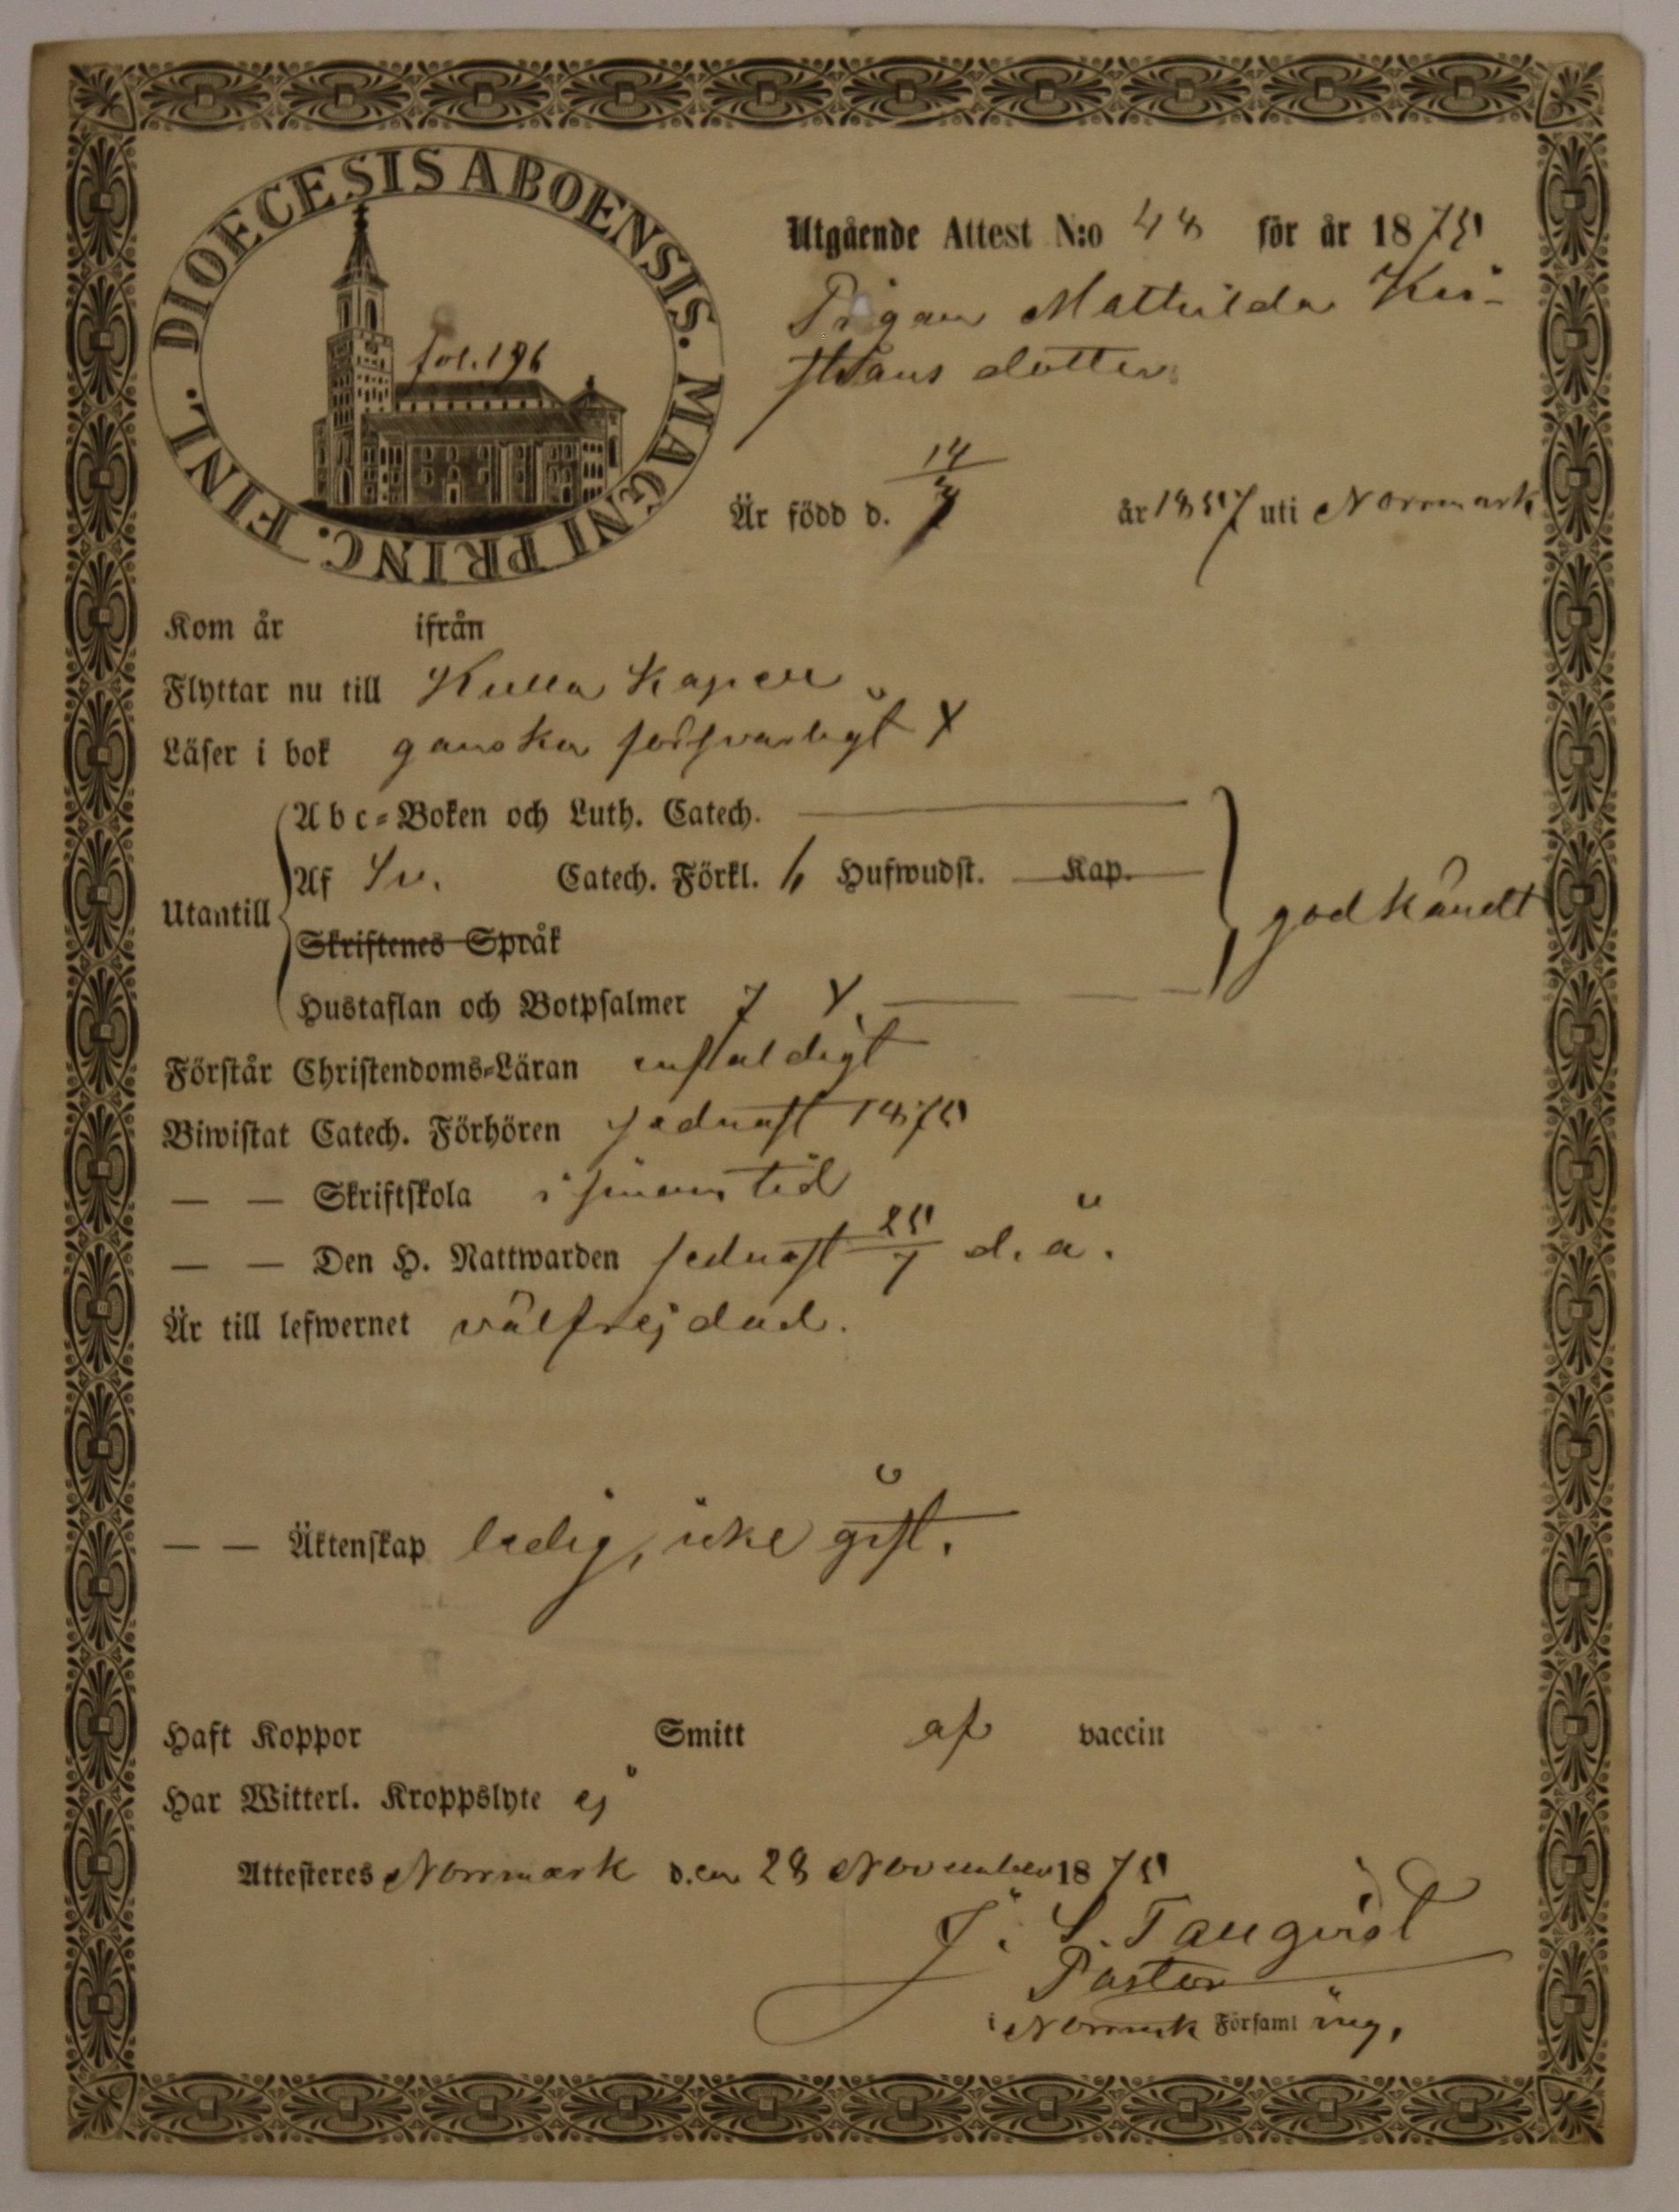 DIOECESIS ABOENSIS. MAGNI PRINC. FINL.
fol. 196
Utgående Attest N:o 48 för år 1875
Pigan Mathilda Kri-
stians dotter
Är född d. 14/7 år 1857 uti Norrmark
Kom år ifrån
Flyttar nu till Kulla Kapell
Läser i bok ganska försvarligt
Abc-Boken och Luth. Catech.
Utantill
Af Sv. Catech. Förkl. 6 Hufwudst. Kap.
godkändt
Skriftenes Språk
Hustaflan och Botpsalmer 7
Förstår Christendoms-Läran enfaldigt
Biwistat Catech. Förhören sednast 1875
— — Skriftskola i sinom tid
— — Den H. Nattwarden sednast 25/7 d. å.
Är till lefwernet välfrejdad.
— — Äktenskap ledig, icke gift.
Haft Koppor Smitt af vaccin
Har Witterl. Kroppslyte ej
Attesteres Norrmark den 28 November 1875
J. S. Tallqvist
Pastor
i Norrmark Församling.